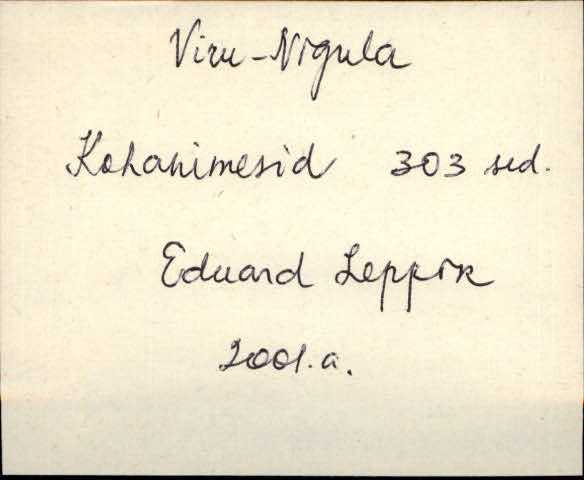 Viru-Nigula
Kohanimesid 303 sed.
Eduard Leppik
2001.a.